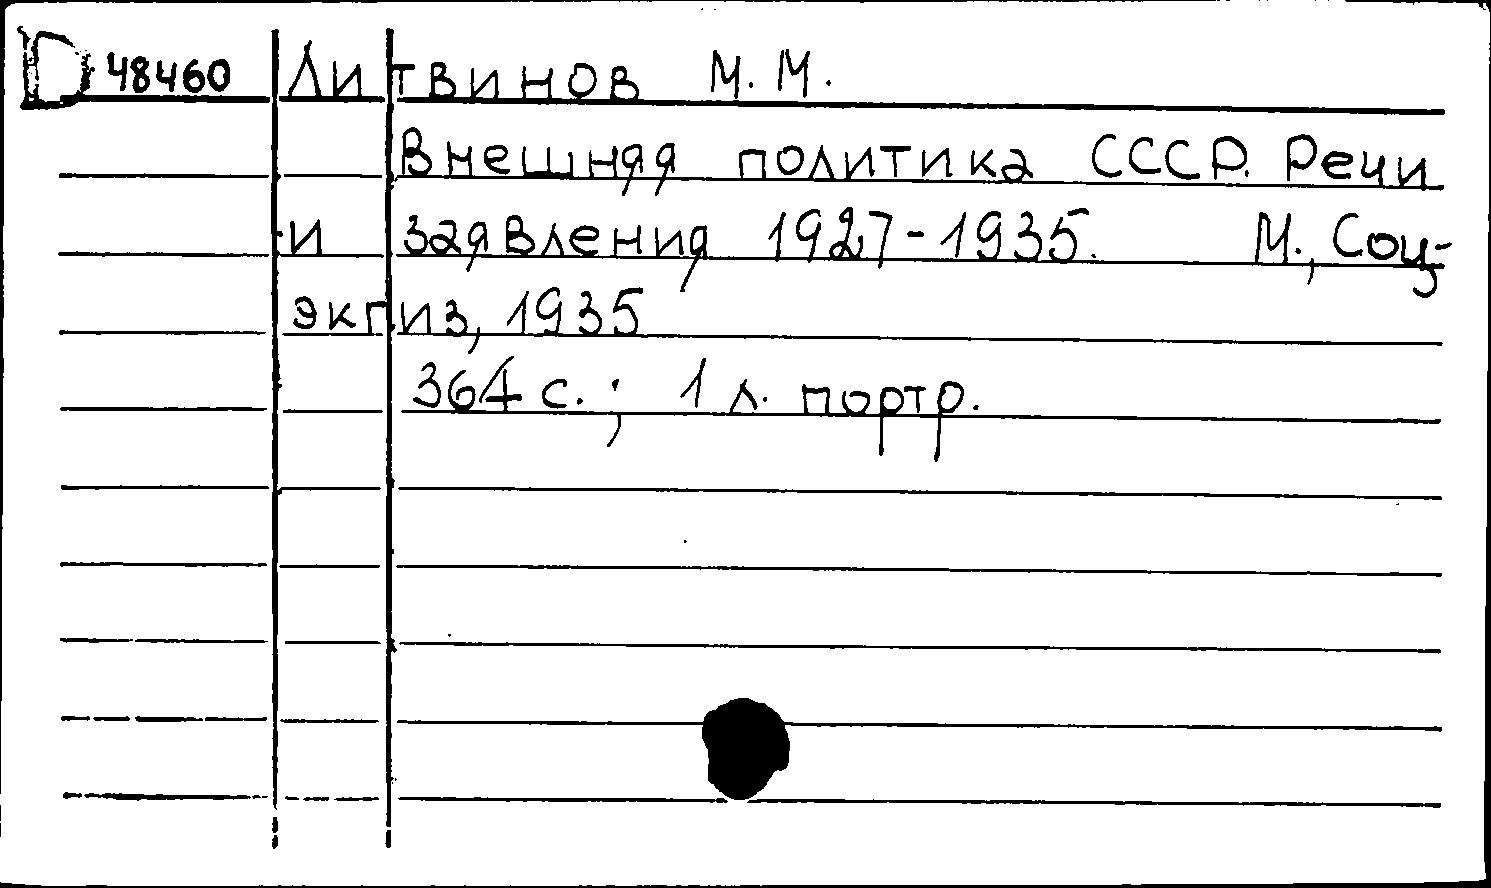 D 48460 Литвинов М. М.
Внешняя политика СССР. Речи
и заявления 1927-1935. М., Соц-
экгиз, 1935
364 с. ; 1 л. портр.